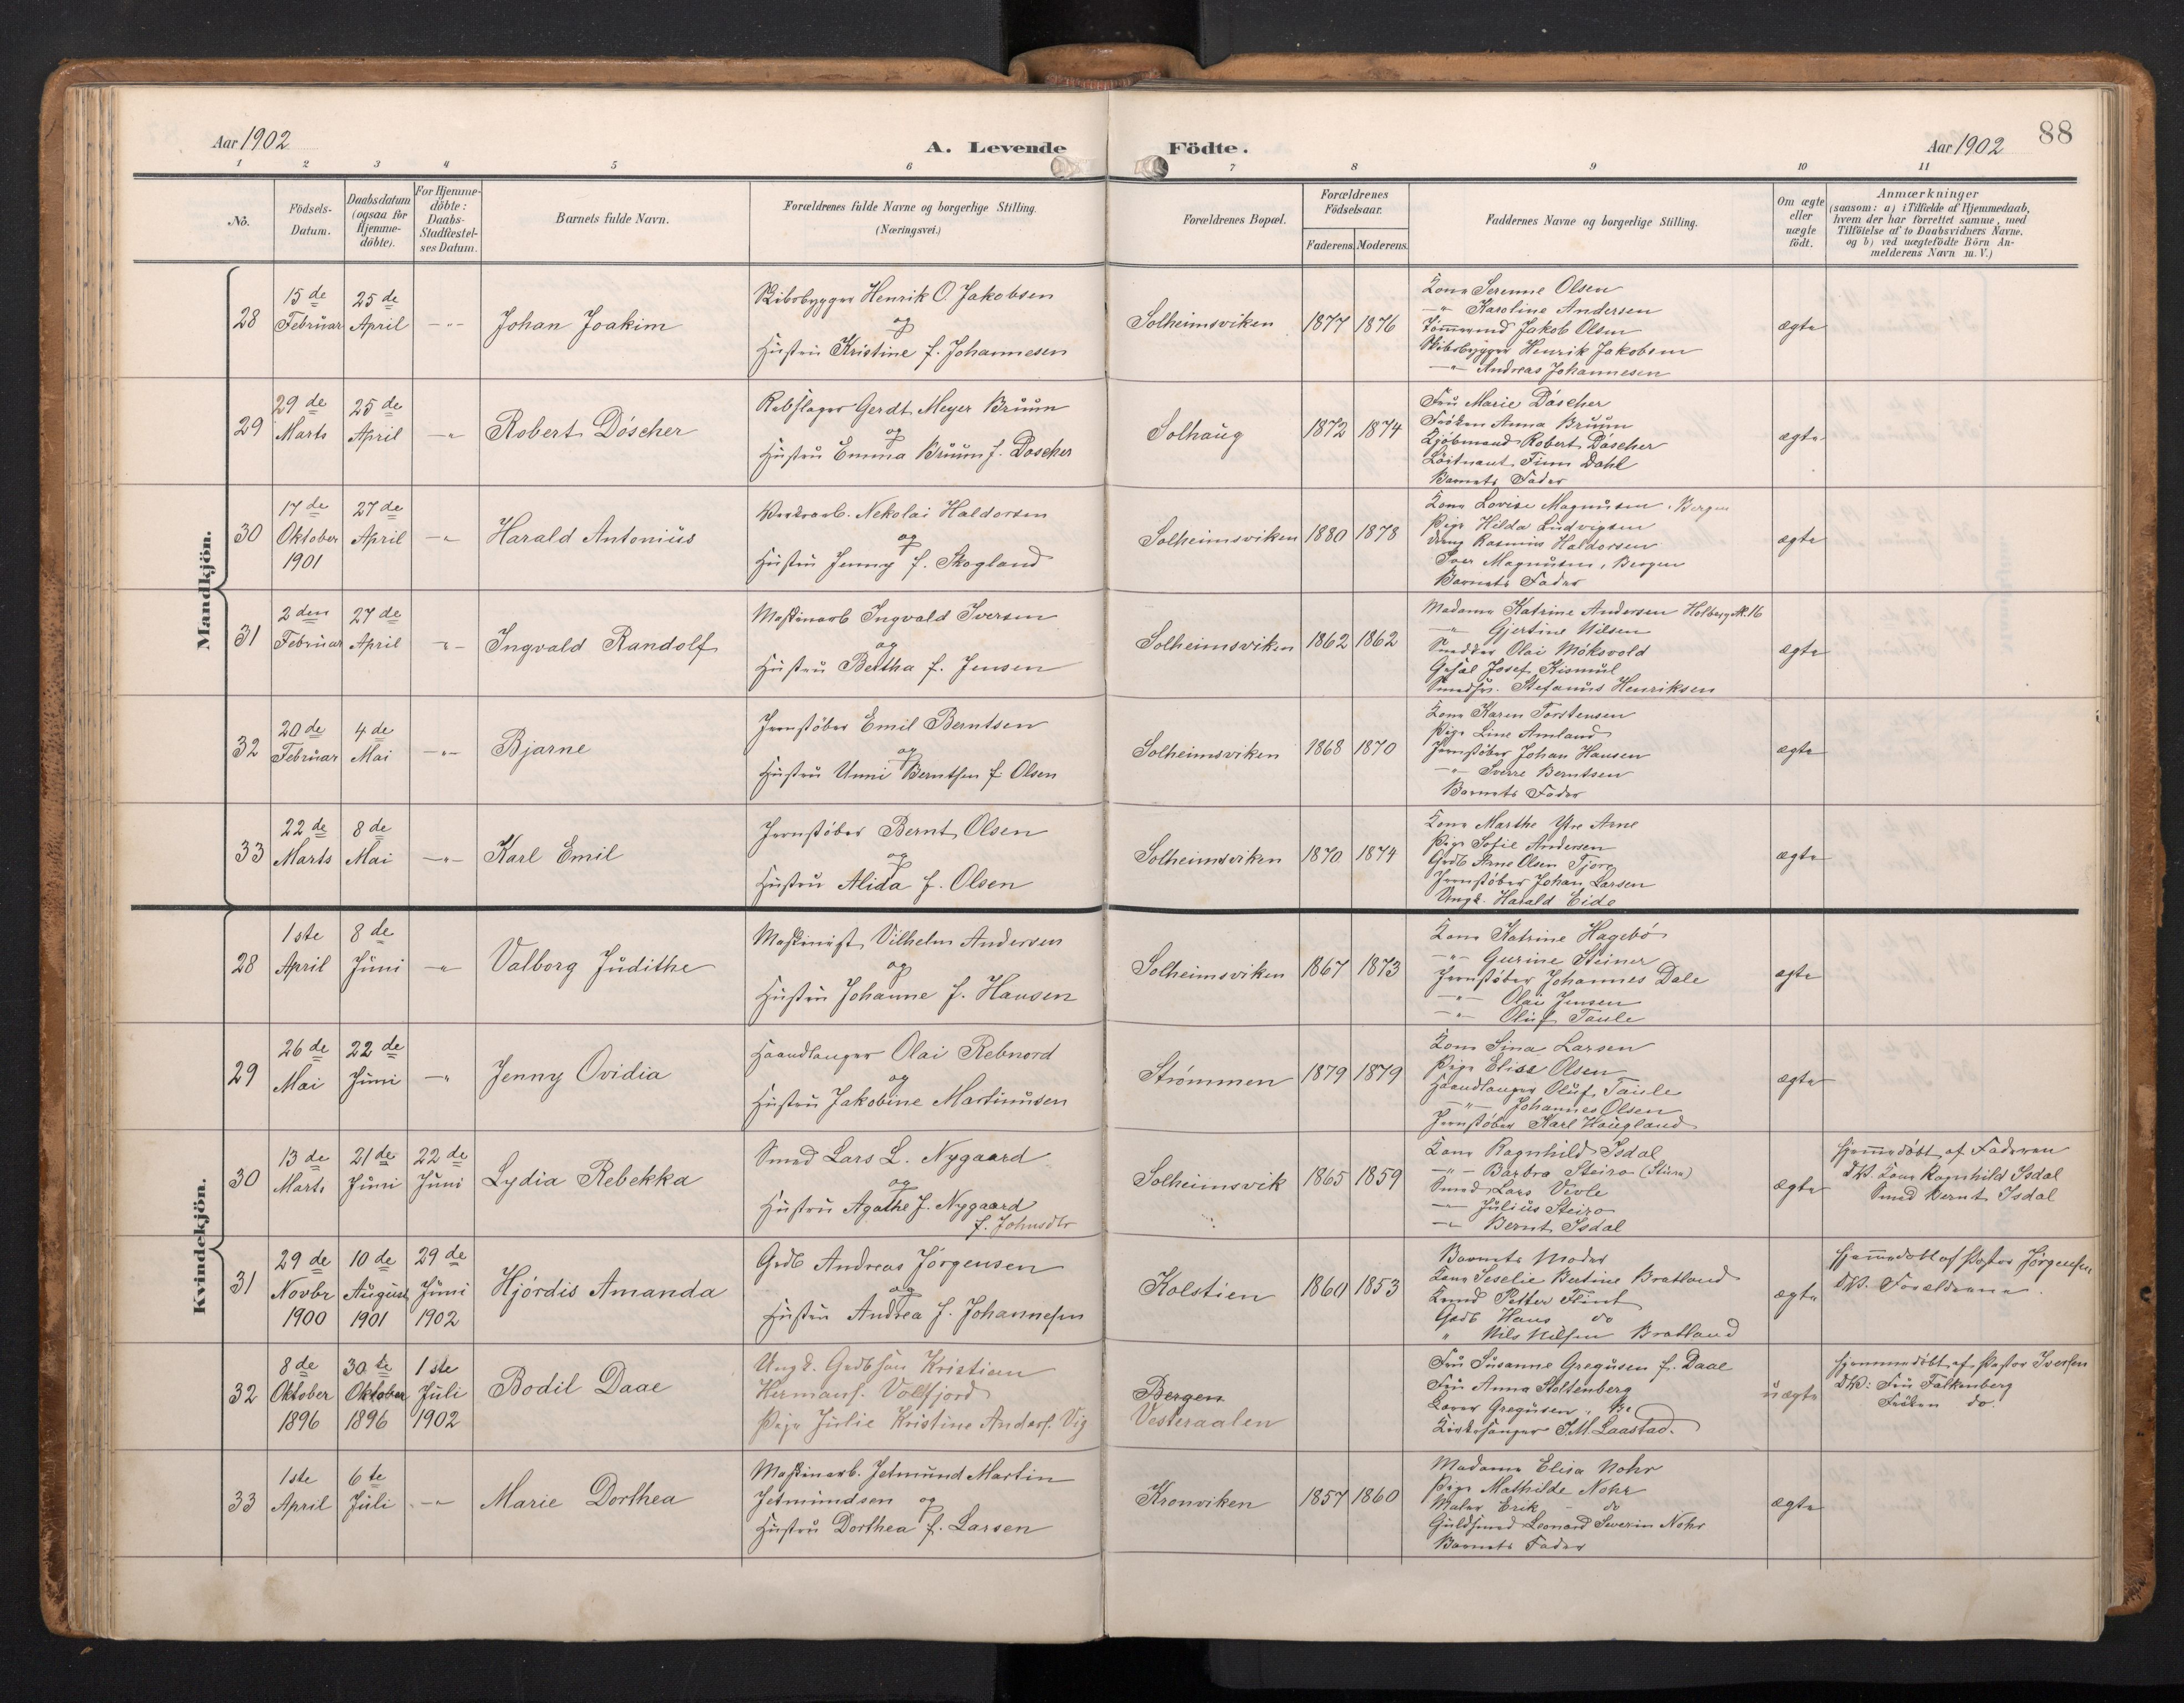 Aar 1902
A. Levende
Födte.
Aar 1902
88
1 2 3 4 5 6 7 8 9 10 11
No.
Födsels-
Datum.
Daabsdatum
(ogsaa för
Hjemme-
döbte).
For Hjemme-
döbte:
Daabs-
Stadfæstel-
ses Datum.
Barnets fulde Navn.
Forældrenes fulde Navne og borgerlige Stilling.
(Næringsvei.)
Forældrenes Bopæl.
Forældrenes
Födselsaar.
Faderens. Moderens.
Faddernes Navne og borgerlige Stilling.
Om ægte
eller
uægte
födt.
Anmærkninger
(saasom: a) i Tilfælde af Hjemmedaab,
hvem der har forrettet samme, med
Tilföielse af to Daabsvidners Navne.
og b) ved uægtefödte Börn An-
melderens Navn m. V.)
Mandkjön.
28
15de
Februar
25de
April
Johan Joakim
Skibsbygger Henrik O. Jakobsen
og
Hustru Kristine f. Johannesen
Solheimsviken
1877 1876
Kone Serenne Olsen
-"- Karoline Andersen
Tömmermd Jakob Olsen
Skibsbygger Henrik Jakobsen
-"- Andreas Johannesen
ægte
29
29de
Marts
25de
April
Robert Döscher
Rebslager Gerdt Meyer Bruun
og
Hustru Emma Bruun f. Döscher
Solhaug
1872 1874
Fru Marie Döscher
Fröken Anna Bruun
Kjöbmand Robert Döscher
Löitnant Finn Dahl
Barnets Fader
ægte
30
17de
Oktober
1901
27de
April
Harald Antonius
Verksarb. Nekolai Haldorsen
og
Hustru Jenny f. Skogland
Solheimsviken
1880 1878
Kone Lovise Magnusen, Bergen
Pige Hilda Ludvigsen
Dreng Rasmus Haldorsen
Iver Magnusen, Bergen
Barnets Fader
ægte
31
2den
Februar
27de
April
Ingvald Randolf
Maskinarb Ingvald Iversen
og
Hustru Bertha f. Jensen
Solheimsviken
1862 1862
Madame Katrine Andersen Holbergalm. 16
-"- Gjertine Nilsen
Olai Möksvold
Josef Kismul
Stefanus Henriksen
ægte
32
20de
Februar
4de
Mai
Bjarne
Jernstöber Emil Berntsen
og
Hustru Unni Berntsen f. Olsen
Solheimsviken
1868 1870
Kone Karen Torstensen
Pige Line Amland
Jernstöber Johan Hansen
-"- Sverre Berntsen
Barnets Fader
ægte
33
22de
Marts
8de
Mai
Karl Emil
Jernstöber Bernt Olsen
og
Hustru Alida f. Olsen
Solheimsviken
1870 1874
Kone Marthe Ytre Arne
Pige Sofie Andersen
Grdb Arne Olsen
Jernstöber Johan Larsen
Ungk. Harald Eide
ægte
Kvindekjön.
28
1ste
April
8de
Juni
Valborg Judithe
Maskinist Vilhelm Andersen
og
Hustru Johanne f. Hansen
Solheimsviken
1867 1873
Kone Katrine Hagebö
-"- Gurine Steiner
Jernstöber Johannes Dale
-"- Olai Jensen
-"- Oluf Taule
ægte
29
26de
Mai
22de
Juni
Jenny Ovidia
Haandlanger Olai Rebnord
og
Hustru Jakobine Martinusen
Strömmen
1879 1879
Kone Sina Larsen
Pige Elise Olsen
Haandlanger Oluf Taule
-"- Johannes Olsen
Jernstöber Karl Haugland
ægte
30
13de
Marts
21de
Juni
22de
Juni
Lydia Rebekka
Smed Lars L. Nygaard
og
Hustru Agathe J. Nygaard
f. Johnsdtr
Solheimsvik
1865 1859
Kone Ragnhild Isdal
-"- Barbra Steiro (Stüra)
Smed Lars Vevle
-"- Julius Steiro
-"- Bernt Isdal
ægte
Hjemmedöbt af Faderen
DV. Kone Ragnhild Isdal
Smed Bernt Isdal
31
29de
Novbr
1900
10de
August
1901
29de
Juni
1902
Hjördis Amanda
Grdb Andreas Jörgensen
og
Hustru Andrea f. Johannesen
Kolstien
1860 1853
Barnets Moder
Kone Seselie Bertine Bratland
Petter Flint
Grdb Hans do
" Nils Nilsen Bratland
ægte
Hjemmedöbt af Pastor Jörgensen
DV. Forældrene.
32
8de
Oktober
1896
30te
Oktober
1896
1ste
Juli
1902
Bodil Daae
Ungk. Grdbsön Kristian
Hermans. Volfjord
Pige Julie Kristine Anders. Vig
Bergen
Vesteraalen
Fru Susanne Gregusen f. Daae
Fru Anna Stoltenberg
Gregusen,
Kirkesanger J.M. Laastad.
uægte
Hjemmedöbt af Pastor Iversen
DV: Fru Falkenberg
Fröken do.
33
1ste
April
6te
Juli
Marie Dorthea
Maskinarb. Jetmund Martin
Jetmundsen og
Hustru Dorthea f. Larsen
Kronviken
1857 1860
Madame Elisa Nohr
Pige Mathilde Nohr
Maler Erik do
Guldsmed Leonard Severin Nohr
Barnets Fader
ægte